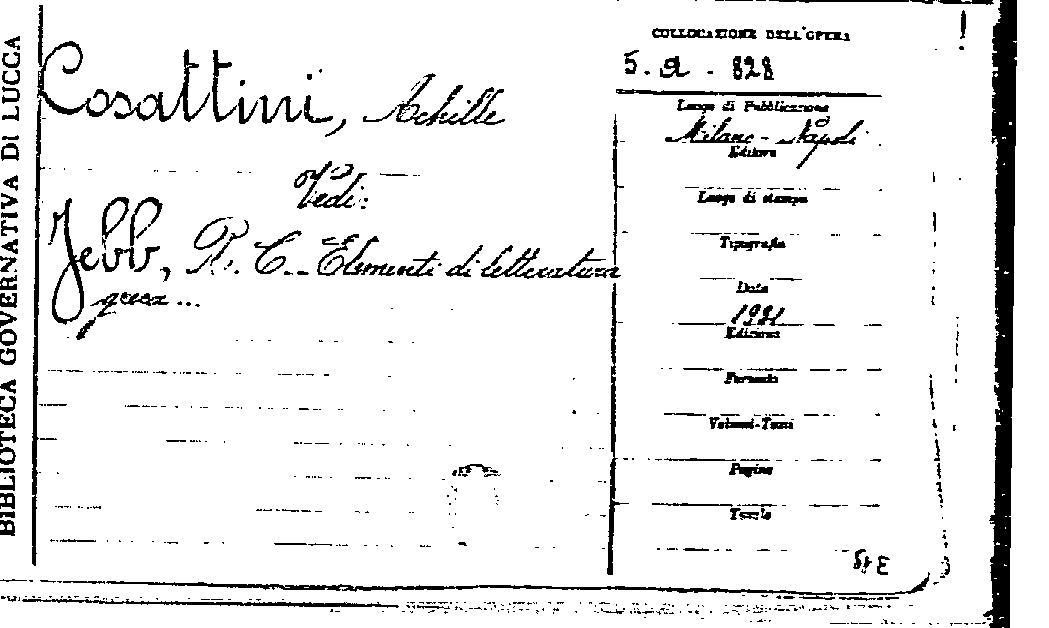 BIBLIOTECA GOVERNATIVA DI LUCCA
Cosattini, Achille
Vedi:
Jebb, R. C. - Elementi di letteratura
greca ...
COLLOCAZIONE DELL'OPERA
5. a. 828
Luogo di Pubblicazione
Milano - Napoli
Editore
Luogo di stampa
Tipografia
Data
1921
Edizione
Formato
Volumi-Tomi
Pagine
Tavole